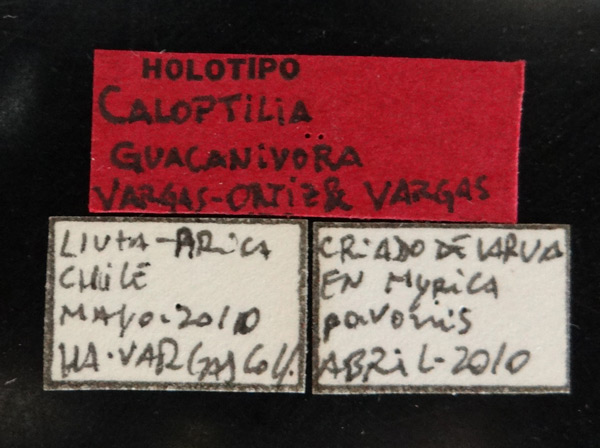 HOLOTIPO
CALOPTILIA
GUACANIVORA
VARGAS-ORTIZ & VARGAS
LLUTA-ARICA
CHILE
MAYO-2010
HA.VARGAS COLL.
CRIADO DE LARVA
EN Myrica
pavonis
ABRIL-2010